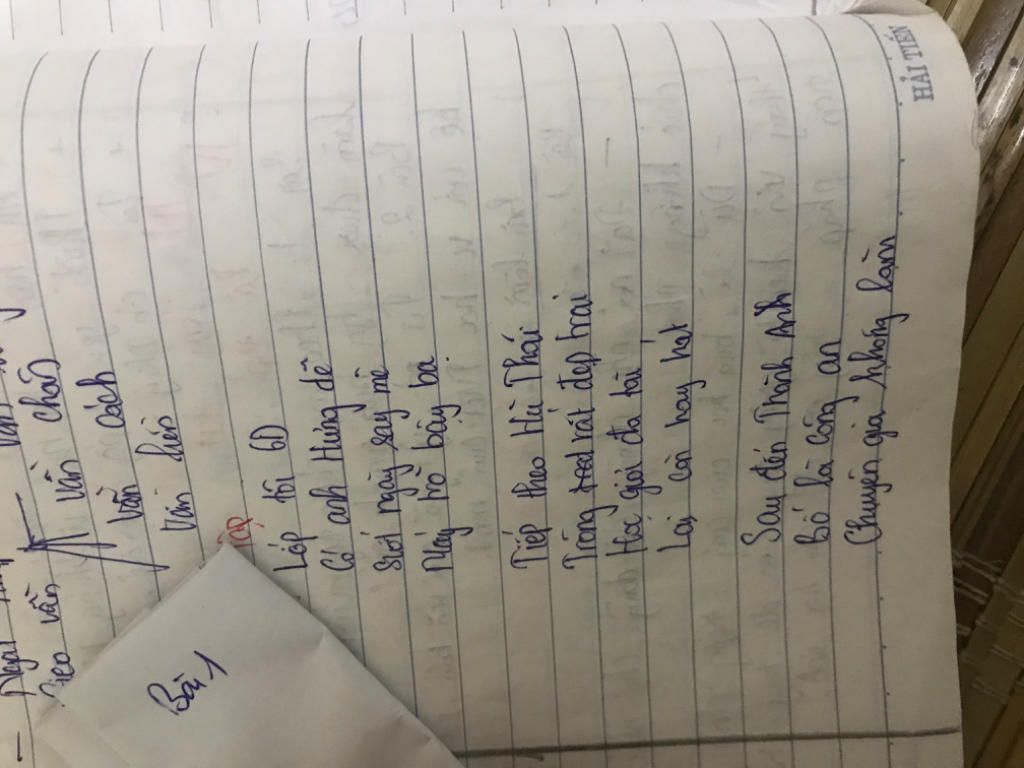 Gieo vần
Vần chân
Vần cách
Bài 1
Lớp tôi 6D
Có anh Hưng dê
Suốt ngày say mê
Mấy trò bậy bạ
Tiếp theo Hà Thái
Trông rất đẹp trai
Học giỏi đa tài
Lại còn hay hát
Sau đến Thành Anh
Bố là công an
Chuyên gia không bàn
HẢI TIẾN